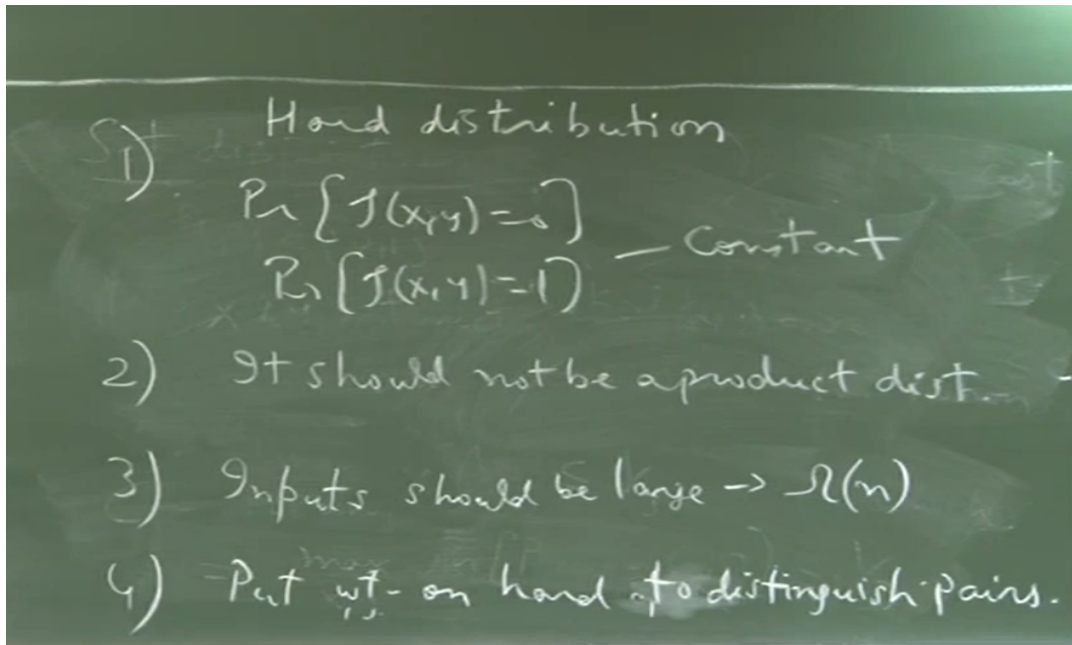 Hard distribution
1)
Pr [f(x,y)=0]
Pr [f(x,y)=1] — Constant
2) It should not be a product dist.
3) Inputs should be large -> Ω(n)
4) Put wt. on hard to distinguish pairs.